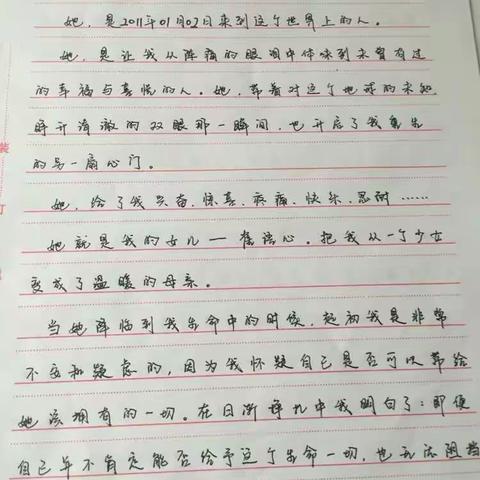 她,是2011年01月02日来到这个世界上的人。
她,是让我从阵痛的眼泪中体味到未曾有过
的幸福与喜悦的人。她,带着对这个地球的未知
睁开清澈的双眼那一瞬间,也开启了我重生
的另一扇心门。
装
她,给了我兴奋、惊喜、疼痛、快乐、忍耐……
订
她就是我的女儿—语心。把我从一个少女
变成了温暖的母亲。
当她降临到我生命中的时候,起初我是非常
不安和疑虑的,因为我怀疑自己是否可以带给
她该拥有的一切。在日渐挣扎中我明白了:即便
自己并不肯定能否给予这个生命一切,也无法阻挡